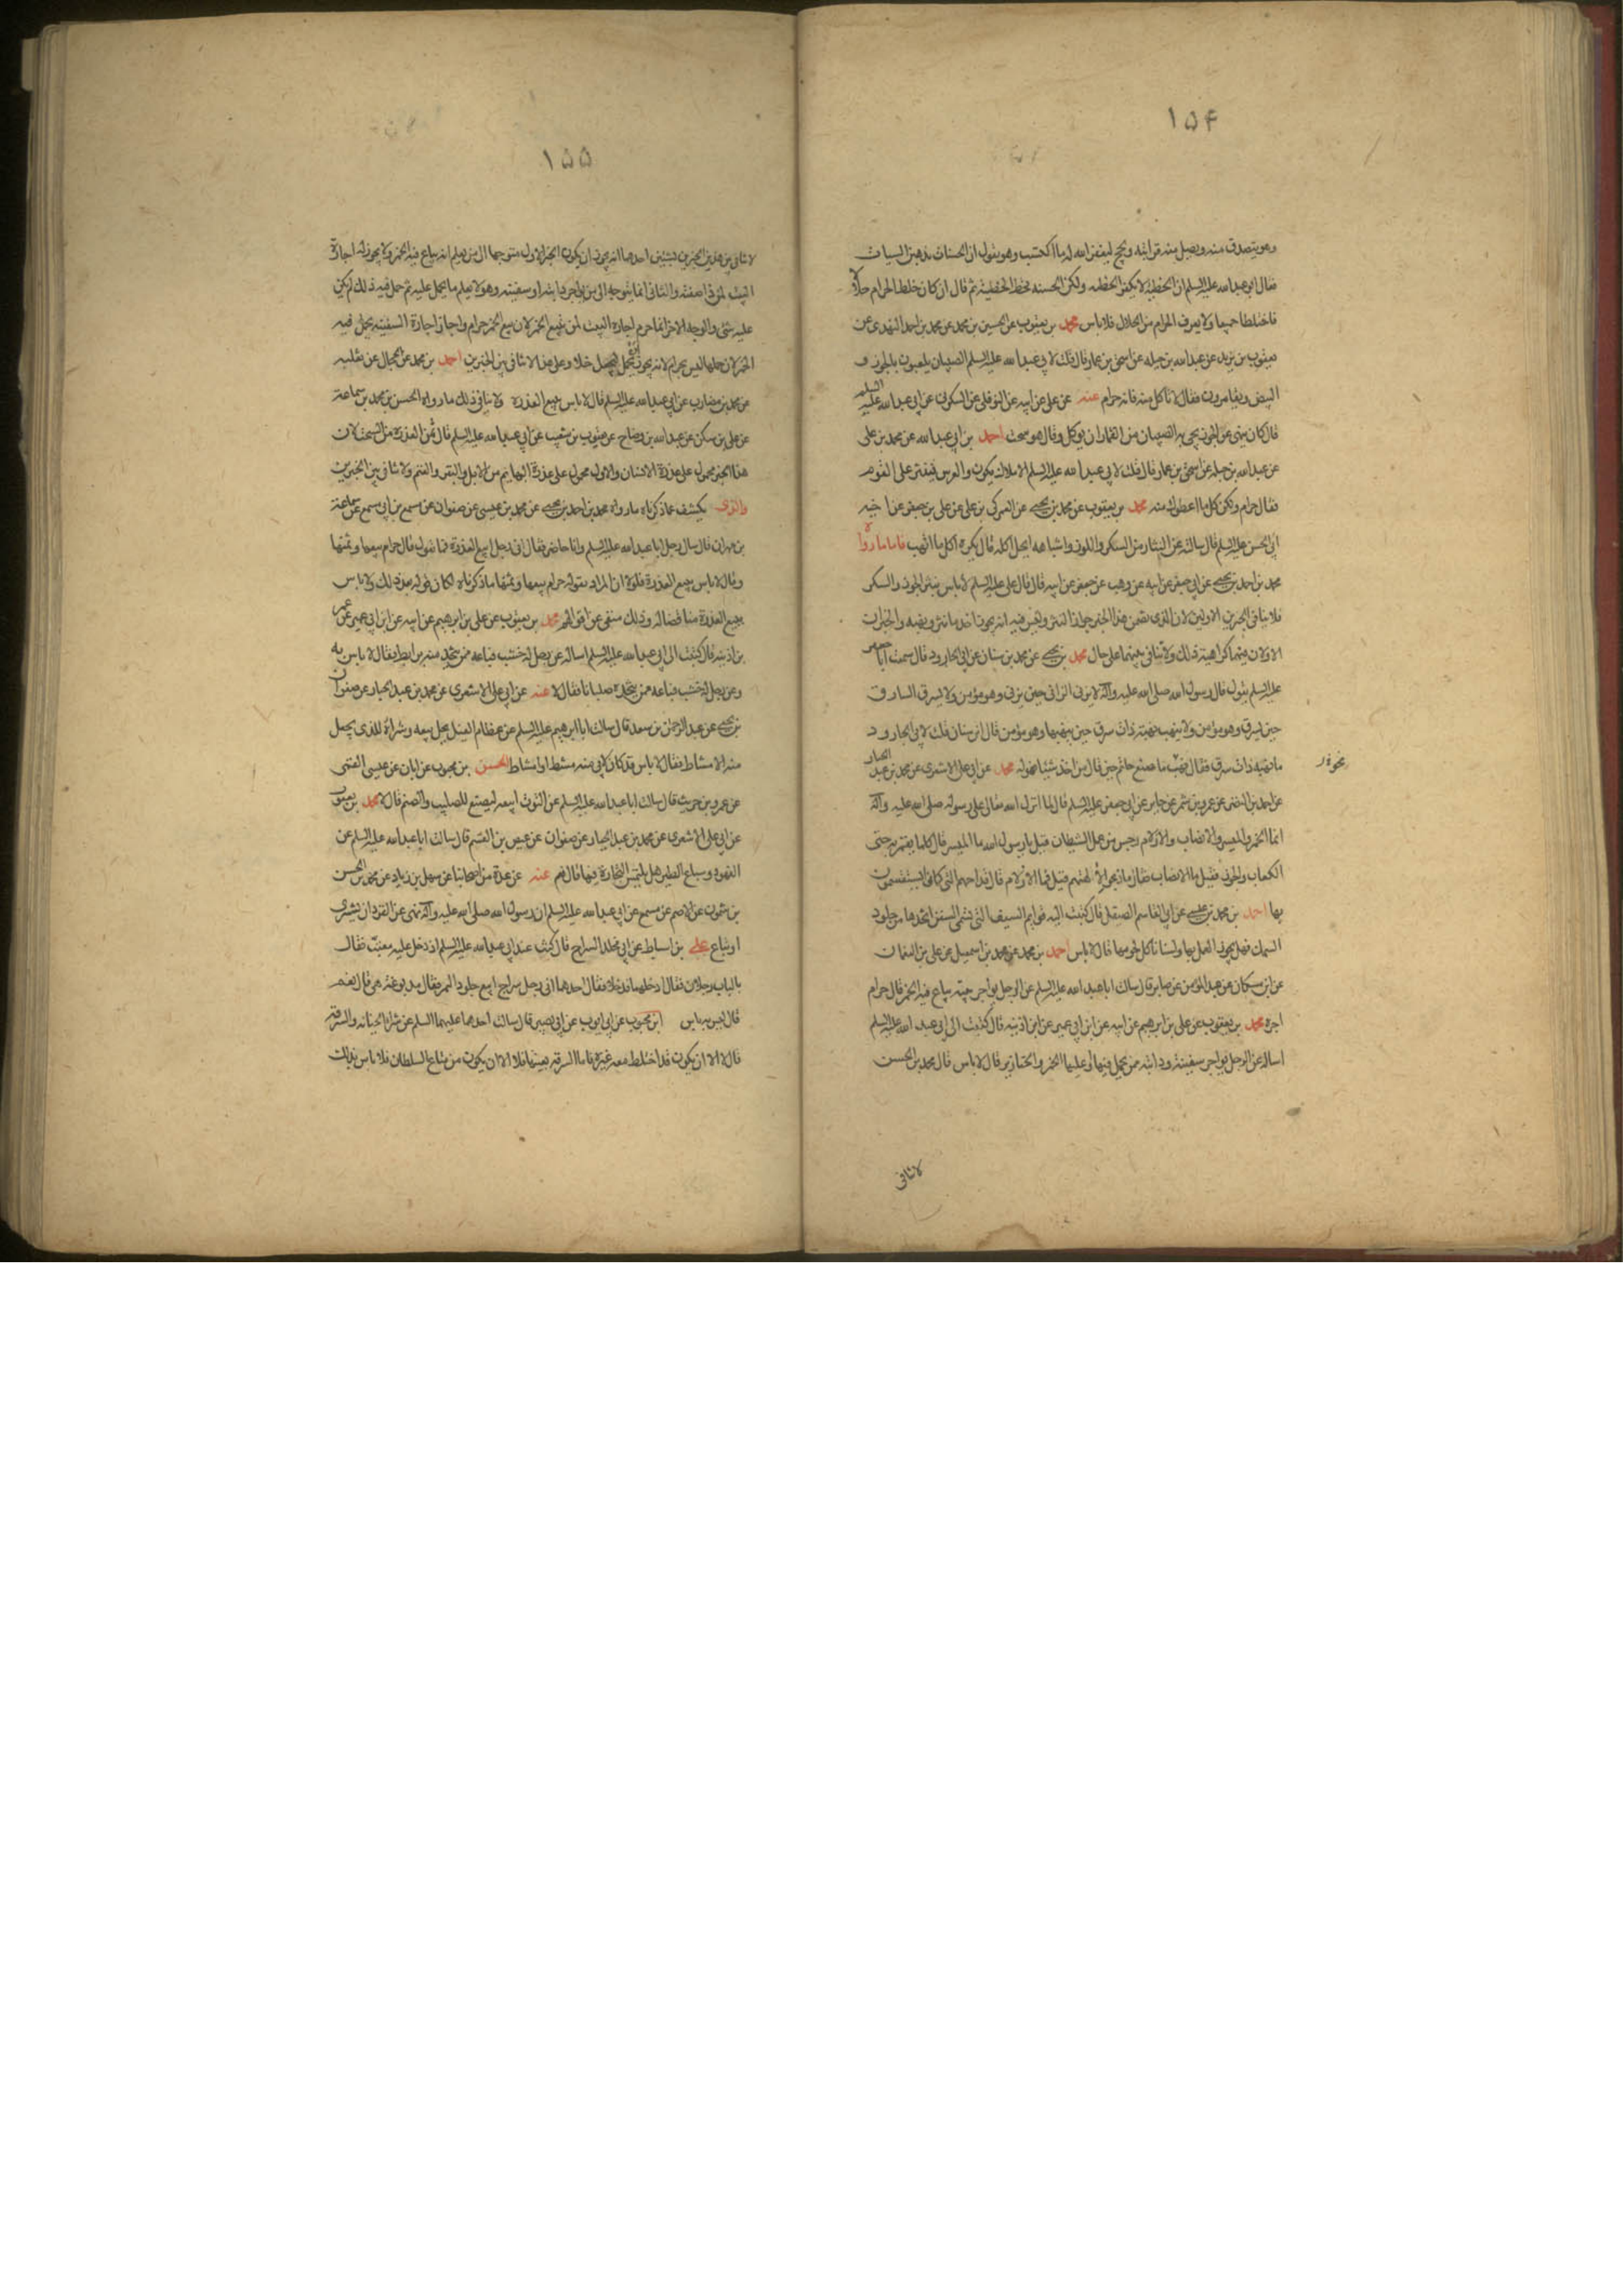 ١٥۴
وهو يتصدق منه ويصل منه قرابته ويحج ليغفر الله له ما اكتسب وهو يقول ان الحسنات يذهبن السيات
فقال ابو عبدالله عليه السلم ان الخطيئة لا يكفر الخطيئه ولكن الحسنه تحط الخطيئة ثم قال ان كان خلط الحرام حلالا
فاختلطا جميعا ولا يعرف الحرام من الحلال فلا باس محمد بن يعقوب عن الحسين بن محمد عن محمد بن احمد النهدى عن
يعقوب بن يزيد عن عبدالله بن جبله عن اسحق بن عمار قال قلت لابى عبدالله عليه السلم الصبيان يلعبون بالجوز و
البيض ويقامرون فقال لا تأكل منه فانه حرام عنه عن على عن ابيه عن النوفلى عن السكونى عن ابى عبدالله عليه السلم
قال كان ينهى عن الجوز يجئ به الصبيان من القمار ان يوكل وقال هو سحت احمد بن ابى عبدالله عن محمد بن على
عن عبدالله بن جبلة عن اسحق بن عمار قال قلت لابى عبدالله عليه السلم الاملاك يكون والعرس فينثر على القوم
فقال حرام ولكن كل ما اعطوك منه محمد بن يعقوب عن محمد بن يحيى عن العمركى بن على عن على بن جعفر عن اخيه
ابى الحسن عليه السلم قال سالته عن النثار من السكر واللوز واشباهه ايحل اكله قال يكره اكل ما انتهب فاما ما رواه
محمد بن احمد بن يحيى عن ابى جعفر عن ابيه عن وهب عن جعفر عن ابيه قال قال على عليه السلم لا باس بنثر الجوز والسكر
فلا ينافى الخبرين الاولين لان الذى تضمن هذا الخبر جواز النثر وليس فيه انه يجوز اخذ ما نثر ونهبه والخبران
الاولان فيهما كراهية ذلك ولا تنافى بينهما على حال محمد بن يحيى عن محمد بن سنان عن ابى الجارود قال سمعت ابا جعفر
عليه السلم يقول قال رسول الله صلى الله عليه وآله لا يزنى الزانى حين يزنى وهو مؤمن ولا يسرق السارق
حين يسرق وهو مؤمن ولا ينهب نهبة ذات سرق حين ينهبها وهو مؤمن قال ابن سنان قلت لابى الجارود
ما نهبه ذات سرق فقال نهب ما صنع حاتم حين قال من اخذ شيئا فهو له محمد عن ابى على الاشعرى عن محمد بن عبد الجبار
نحوة
عن احمد بن النضر عن عمرو بن شمر عن جابر عن ابى جعفر عليه السلم قال لما انزل الله تعالى على رسوله صلى الله عليه وآله
انما الخمر والميسر والانصاب والازلام رجس من عمل الشيطان قيل يا رسول الله ما الميسر قال كلما يقمر به حتى
الكعاب والجوز فقيل ما الانصاب فقال ما ذبحوا لالهتهم قيل فما الازلام قال قداحهم التى كانوا يستقسمون
بها احمد بن محمد بن عيسى عن ابى القاسم الصيقل قال كتبت اليه قوايم السيف التى تسمى السفن اتخذها من جلود
السمك فهل يجوز العمل بها ولسنا ناكل لحومها قال لا باس احمد بن محمد عن محمد بن اسمعيل عن على بن النعمان
عن ابن مسكان عن عبدالمؤمن عن صابر قال سالت ابا عبدالله عليه السلم عن الرجل يواجر بيته يباع فيه الخمر قال حرام
اجره محمد بن يعقوب عن على بن ابرهيم عن ابيه عن ابن ابى عمير عن ابن اذينه قال كتبت الى ابى عبدالله عليه السلم
اساله عن الرجل يواجر سفينته ودابته ممن يحمل فيها او عليها الخمر والخنازير قال لا باس قال محمد بن الحسن
لا تنافى
١٥٥
لا تنافى بين هذين الخبرين بشيئين احدهما انه يجوز ان يكون الخبر الاول متوجها الى من يعلم انه يباع فيه الخمر ولا يجوز له اجارة
البيت لمن هذه صفته والثانى انما يتوجه الى من يواجر دابته او سفينته وهو لا يعلم ما يحمل عليه ثم حمل فيه ذلك لم يكن
عليه شئ والوجه الاخر انما حرم اجارة البيت لمن يبيع الخمر لان بيع الخمر حرام واجاز اجارة السفينة يحمل فيه
الخمر لان حملها ليس بحرام لانه يجوز ان يحمل ليجعل خلا وعلى هذا لا تنافى بين الخبرين احمد بن محمد عن الحجال عن ثعلبه
عن محمد بن مضارب عن ابى عبدالله عليه السلم قال لا باس ببيع العذرة ولا ينافى ذلك ما رواه الحسن بن محمد بن سماعة
عن على بن سكن عن عبدالله بن وضاح عن يعقوب بن شعيب عن ابى عبدالله عليه السلم قال ثمن العذرة من السحت لان
هذا الخبر محمول على عذرة الانسان والاول محمول على عذرة البهايم من الابل والبقر والغنم ولا تنافى بين الخبرين
والذى يكشف عما ذكرناه ما رواه محمد بن احمد بن يحيى عن محمد بن عيسى عن صفوان عن مسمع بن ابى مسمع عن سماعة
بن مهران قال سال رجل ابا عبدالله عليه السلم وانا حاضر فقال انى رجل ابيع العذرة فما تقول قال حرام بيعها وثمنها
وقال لا باس ببيع العذرة فلولا ان المراد بقوله حرام بيعها وثمنها ما ذكرناه لكان قوله بعد ذلك ولا باس
ببيع العذرة مناقضا له وذلك منفى عن اقوالهم محمد بن يعقوب عن على بن ابرهيم عن ابيه عن ابن ابى عمير عن عمر
بن اذينه قال كتبت الى ابى عبدالله عليه السلم اساله عن رجل له خشب فباعه ممن يتخذ منه برابط فقال لا باس به
وعن رجل له خشب فباعه ممن يتخذه صلبانا فقال لا عنه عن ابى على الاشعرى عن محمد بن عبد الجبار عن صفوان
بن يحيى عن عبد الرحمن بن سعد قال سالت ابا ابرهيم عليه السلم عن عظام الفيل يحل بيعه وشراؤه للذى يجعل
منه الامشاط فقال لا باس قد كان لابى منه مشط او امشاط الحسن بن محبوب عن ابان عن عيسى القمى
عن عمرو بن حريث قال سالت ابا عبدالله عليه السلم عن التوت ابيعه ليصنع للصليب والصنم قال لا محمد بن يعقوب
عن ابى على الاشعرى عن محمد بن عبد الجبار عن صفوان عن عيص بن القسم قال سالت ابا عبدالله عليه السلم عن
الفهود وسباع الطير هل يلتمس التجارة فيها قال نعم عنه عن عدة من اصحابنا عن سهل بن زياد عن محمد بن الحسن
بن شمون عن الاصم عن مسمع عن ابى عبدالله عليه السلم ان رسول الله صلى الله عليه وآله نهى عن القردان يشترى
او يباع على بن اسباط عن ابى مخلد السراج قال كنت عند ابى عبدالله عليه السلم اذ دخل عليه معتب فقال
بالباب رجلان فقال ادخلهما فدخلا فقال احدهما انى رجل سراج ابيع جلود النمر فقال مدبوغة هى قال نعم
قال ليس به باس ابن محبوب عن ابى ايوب عن ابى بصير قال سالت احدهما عليهما السلم عن شراء الخيانه والسرقه
قال لا الا ان يكون قد اختلط معه غيره فاما السرقه بعينها فلا الا ان يكون من متاع السلطان فلا باس بذلك